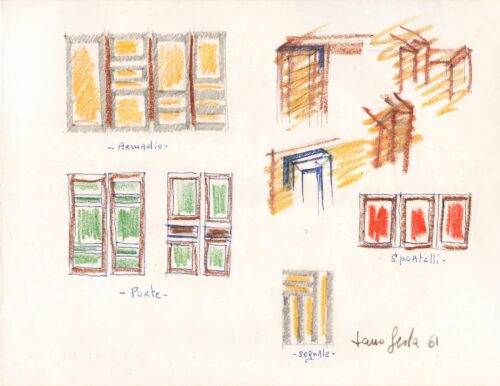 - ARMADIO -
- PORTE -
- SPORTELLI -
- segnale -
Tano Festa 61